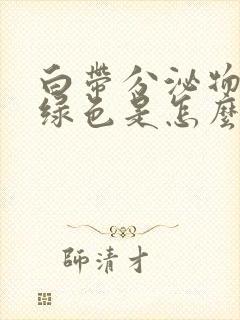 白帶分泌物
綠色是怎麼
師清才